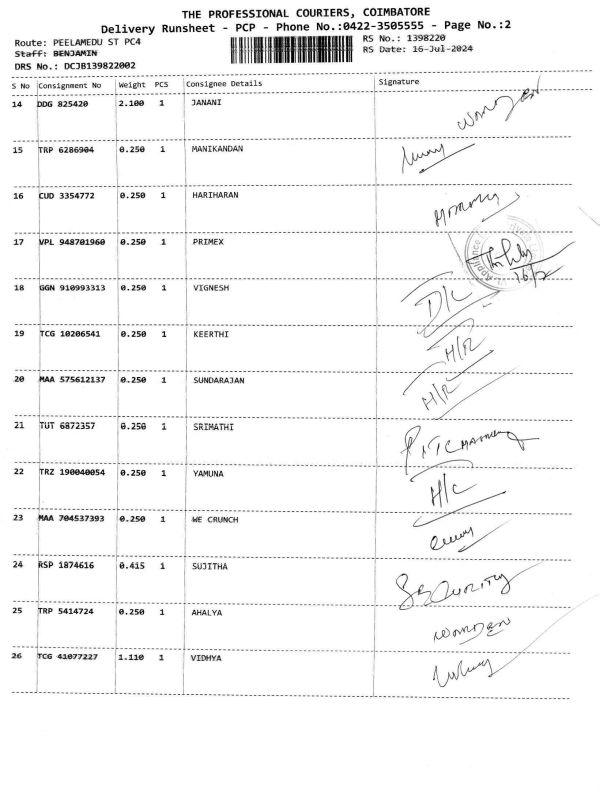 THE PROFESSIONAL COURIERS, COIMBATORE
Delivery Runsheet - PCP - Phone No.:0422-3505555 - Page No.:2
Route: PEELAMEDU ST PC4 RS No.: 1398220
Staff: BENJAMIN RS Date: 16-Jul-2024
DRS No.: DCJB139822002
S No Consignment No Weight PCS Consignee Details Signature
14 DDG 825420 2.100 1 JANANI WARDEN
15 TRP 6286904 0.250 1 MANIKANDAN
16 CUD 3354772 0.250 1 HARIHARAN
17 VPL 948701960 0.250 1 PRIMEX 16/7
18 GGN 910993313 0.250 1 VIGNESH D/L
19 TCG 10206541 0.250 1 KEERTHI H/R
20 MAA 575612137 0.250 1 SUNDARAJAN H/R
21 TUT 6872357 0.250 1 SRIMATHI
22 TRZ 190040054 0.250 1 YAMUNA H/C
23 MAA 704537393 0.250 1 WE CRUNCH
24 RSP 1874616 0.415 1 SUJITHA SECURITY
25 TRP 5414724 0.250 1 AHALYA WARDEN
26 TCG 41077227 1.110 1 VIDHYA